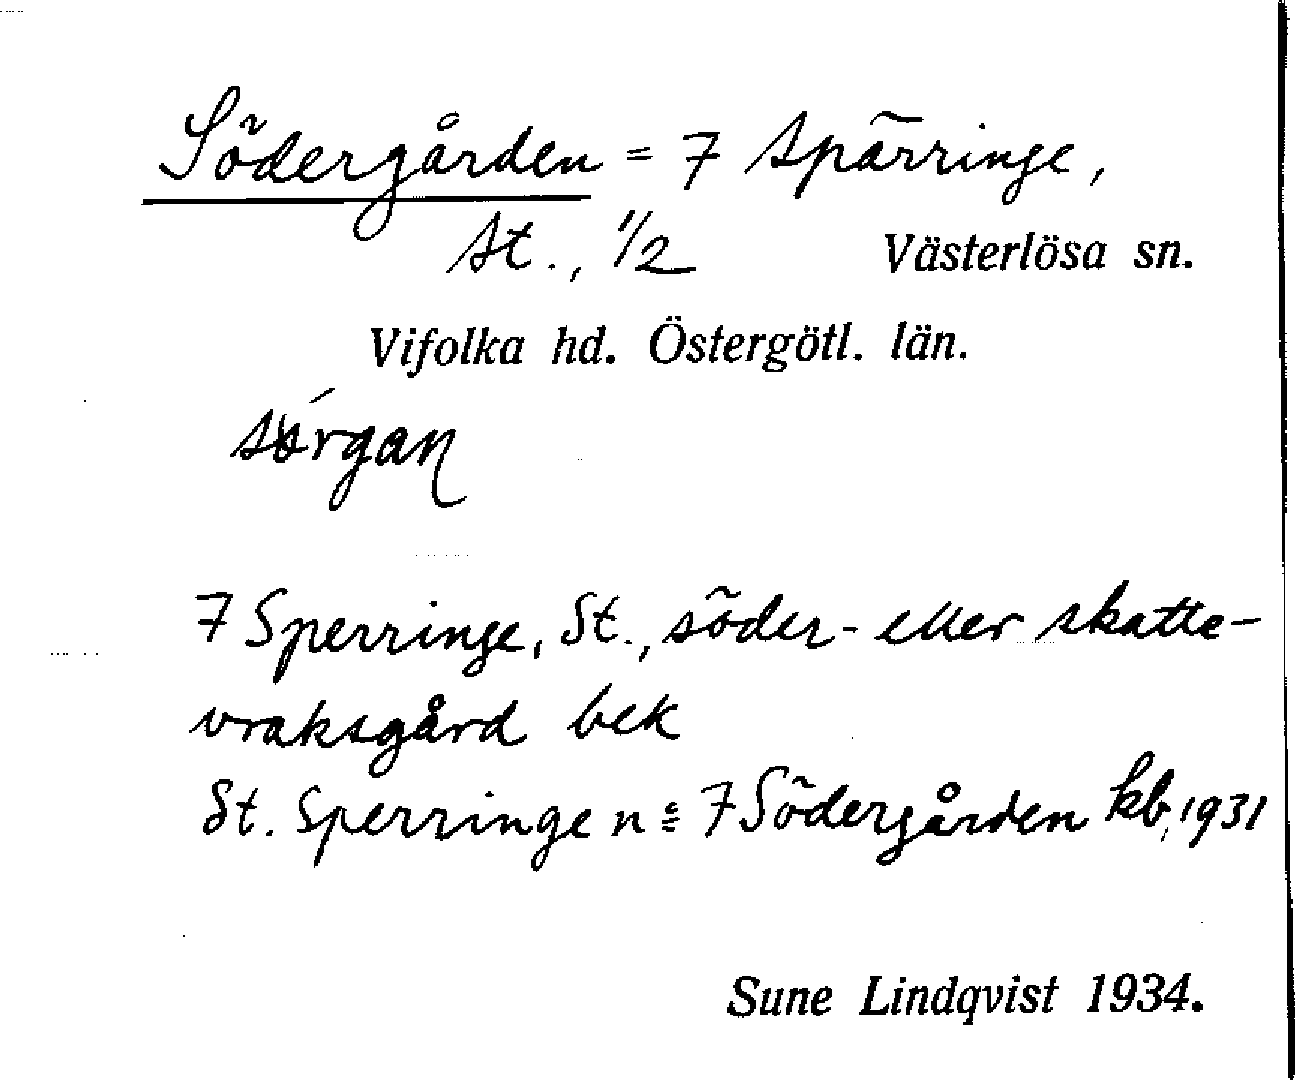 Södergården = 7 Spärringe,
St., 1/2 Västerlösa sn.
Vifolka hd. Östergötl. län.
7 Sperringe, St., söder- eller skatte-
vraksgård bek
St. Sperringe nº 7 Södergården kb, 1931
Sune Lindqvist 1934.